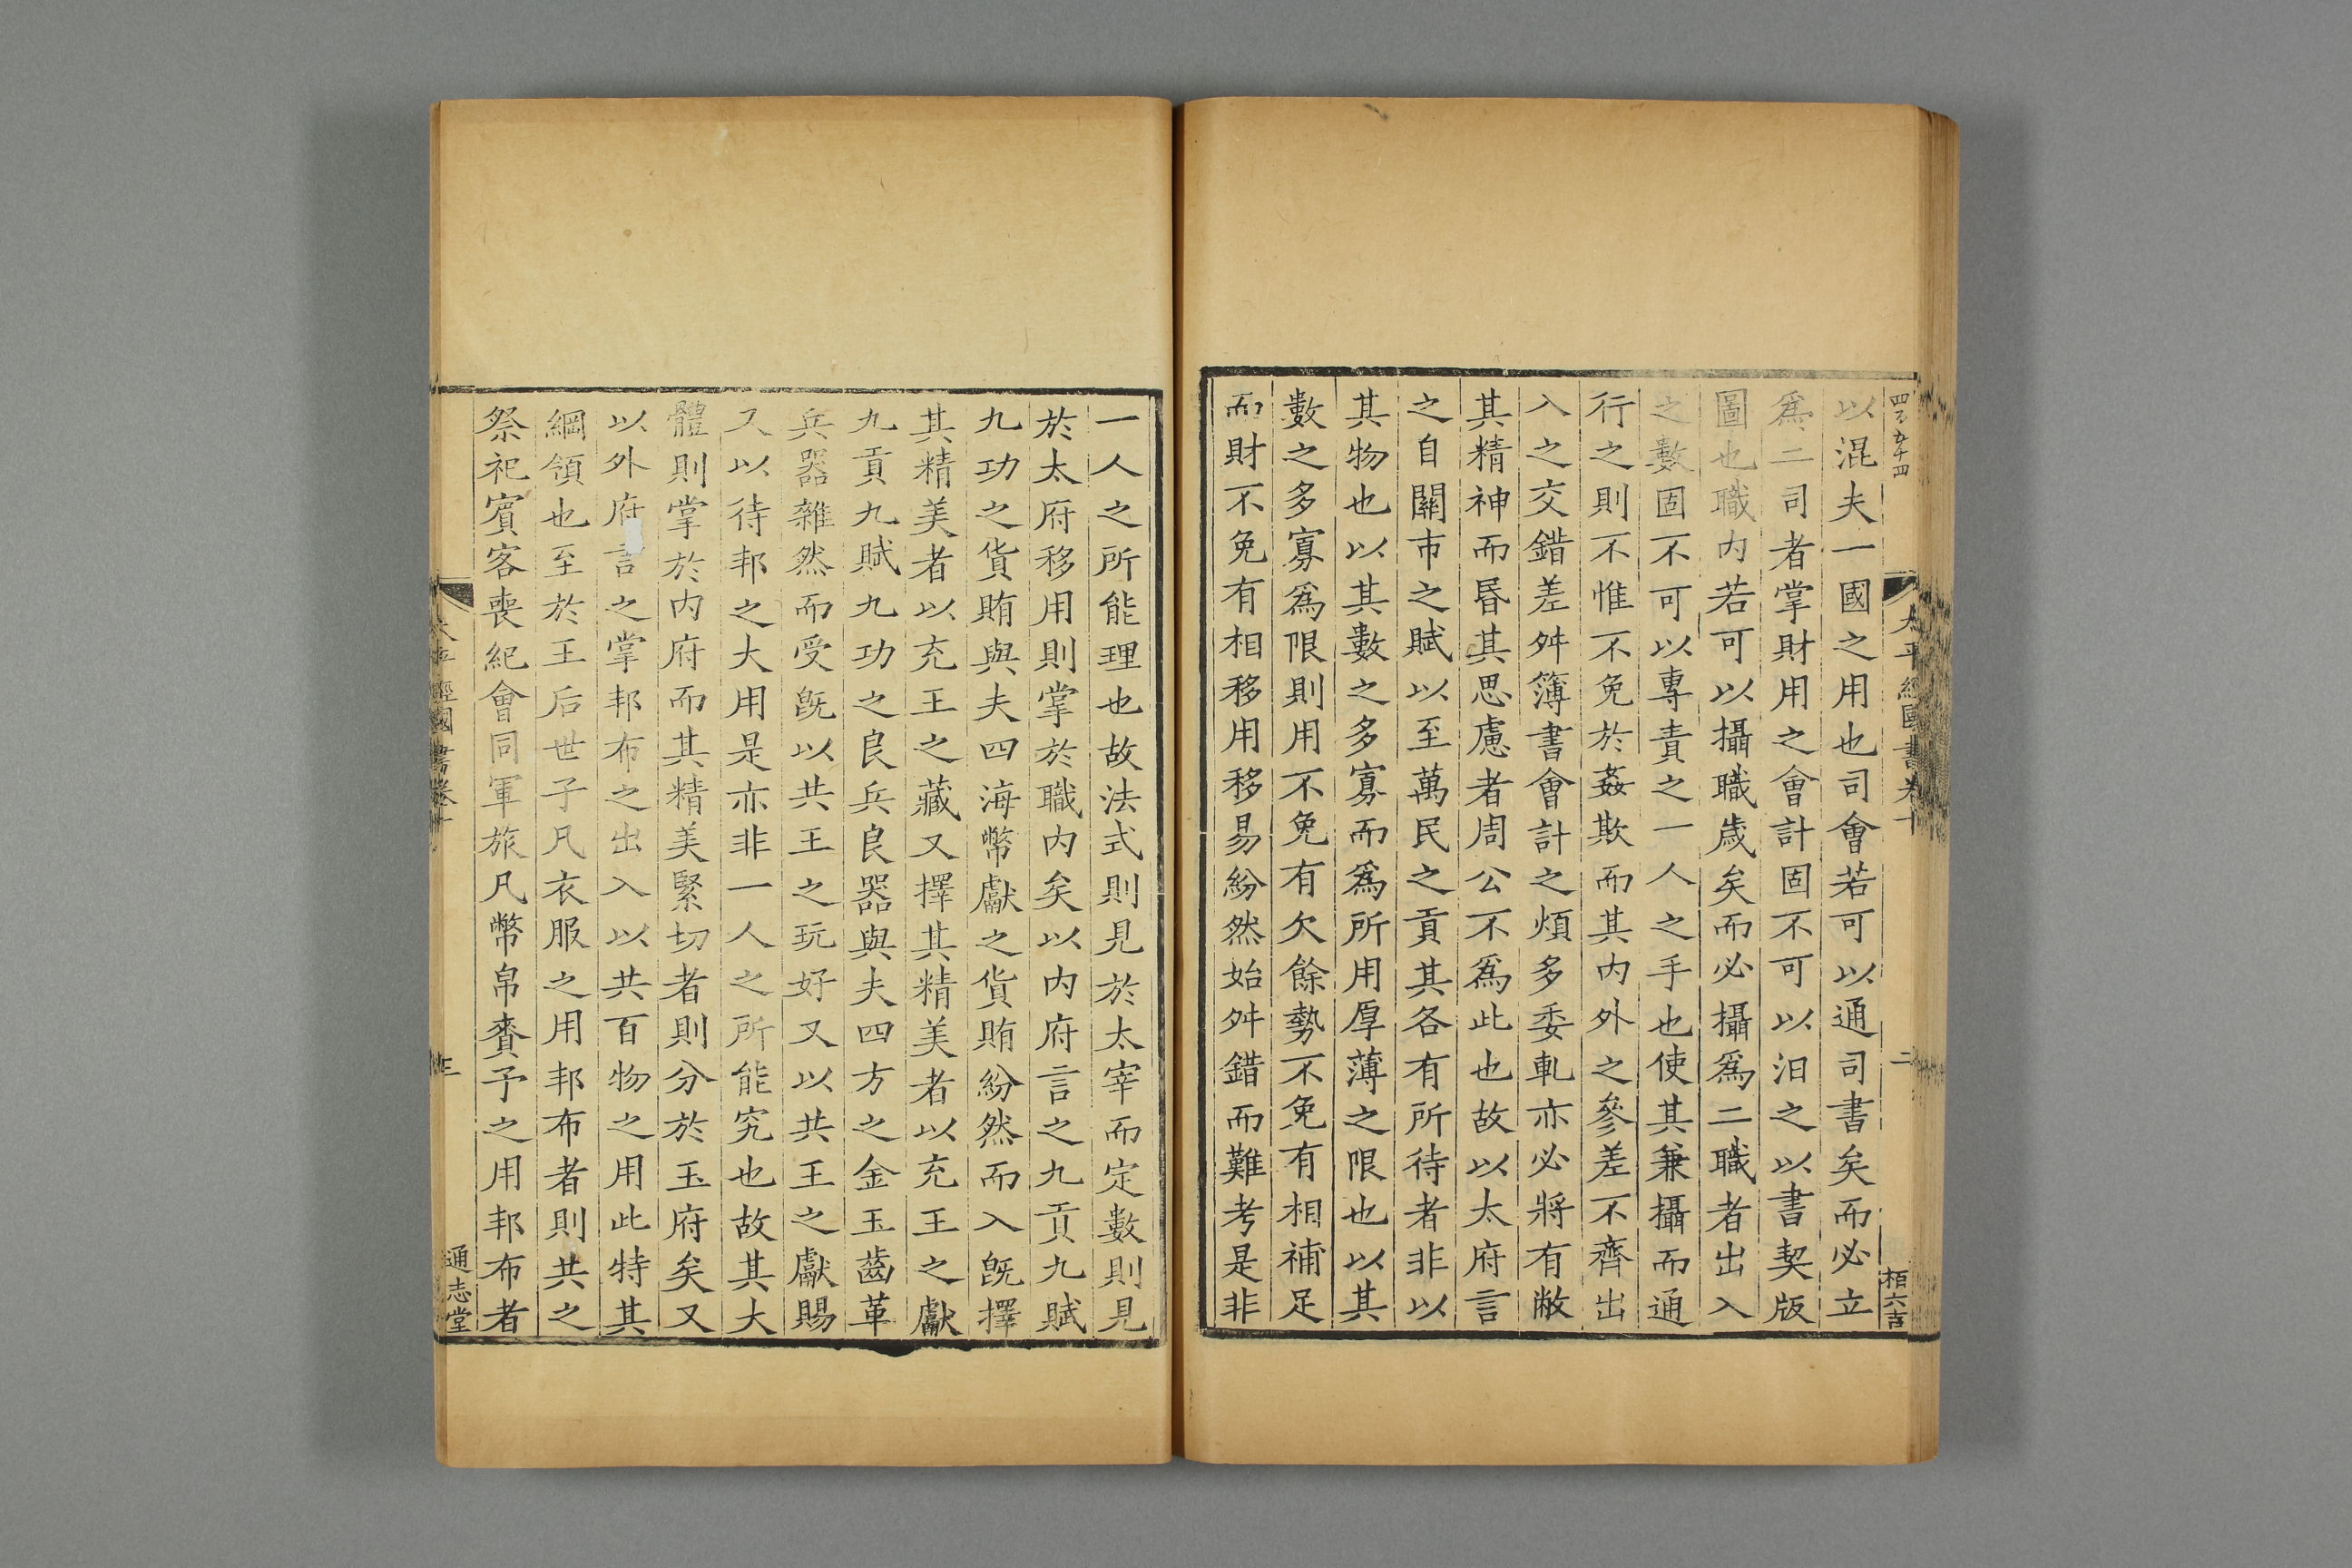 四百五十四
太平經國書卷十
二
栢六吉
以混夫一國之用也司會若可以通司書矣而必立
爲二司者掌財用之會計固不可以汨之以書契版
圖也職内若可以攝職歳矣而必攝爲二職者出入
之數固不可以專責之一人之手也使其兼攝而通
行之則不惟不免於姦欺而其内外之參差不齊出
入之交錯差舛簿書會計之煩多委軋亦必將有敝
其精神而昬其思慮者周公不爲此也故以太府言
之自關市之賦以至萬民之貢其各有所待者非以
其物也以其數之多寡而爲所用厚薄之限也以其
數之多寡爲限則用不免有欠餘勢不免有相補足
而財不免有相移用移易紛然始舛錯而難考是非
一人之所能理也故法式則見於太宰而定數則見
於太府移用則掌於職内矣以内府言之九貢九賦
九功之貨賄與夫四海幣獻之貨賄紛然而入旣擇
其精美者以充王之藏又擇其精美者以充王之獻
九貢九賦九功之良兵良器與夫四方之金玉齒革
兵器雜然而受旣以共王之玩好又以共王之獻賜
又以待邦之大用是亦非一人之所能究也故其大
體則掌於内府而其精美緊切者則分於玉府矣又
以外府言之掌邦布之出入以共百物之用此特其
綱領也至於王后世子凡衣服之用邦布者則共之
祭祀賓客喪紀會同軍旅凡幣帛賷予之用邦布者
太平經國書卷十
通志堂